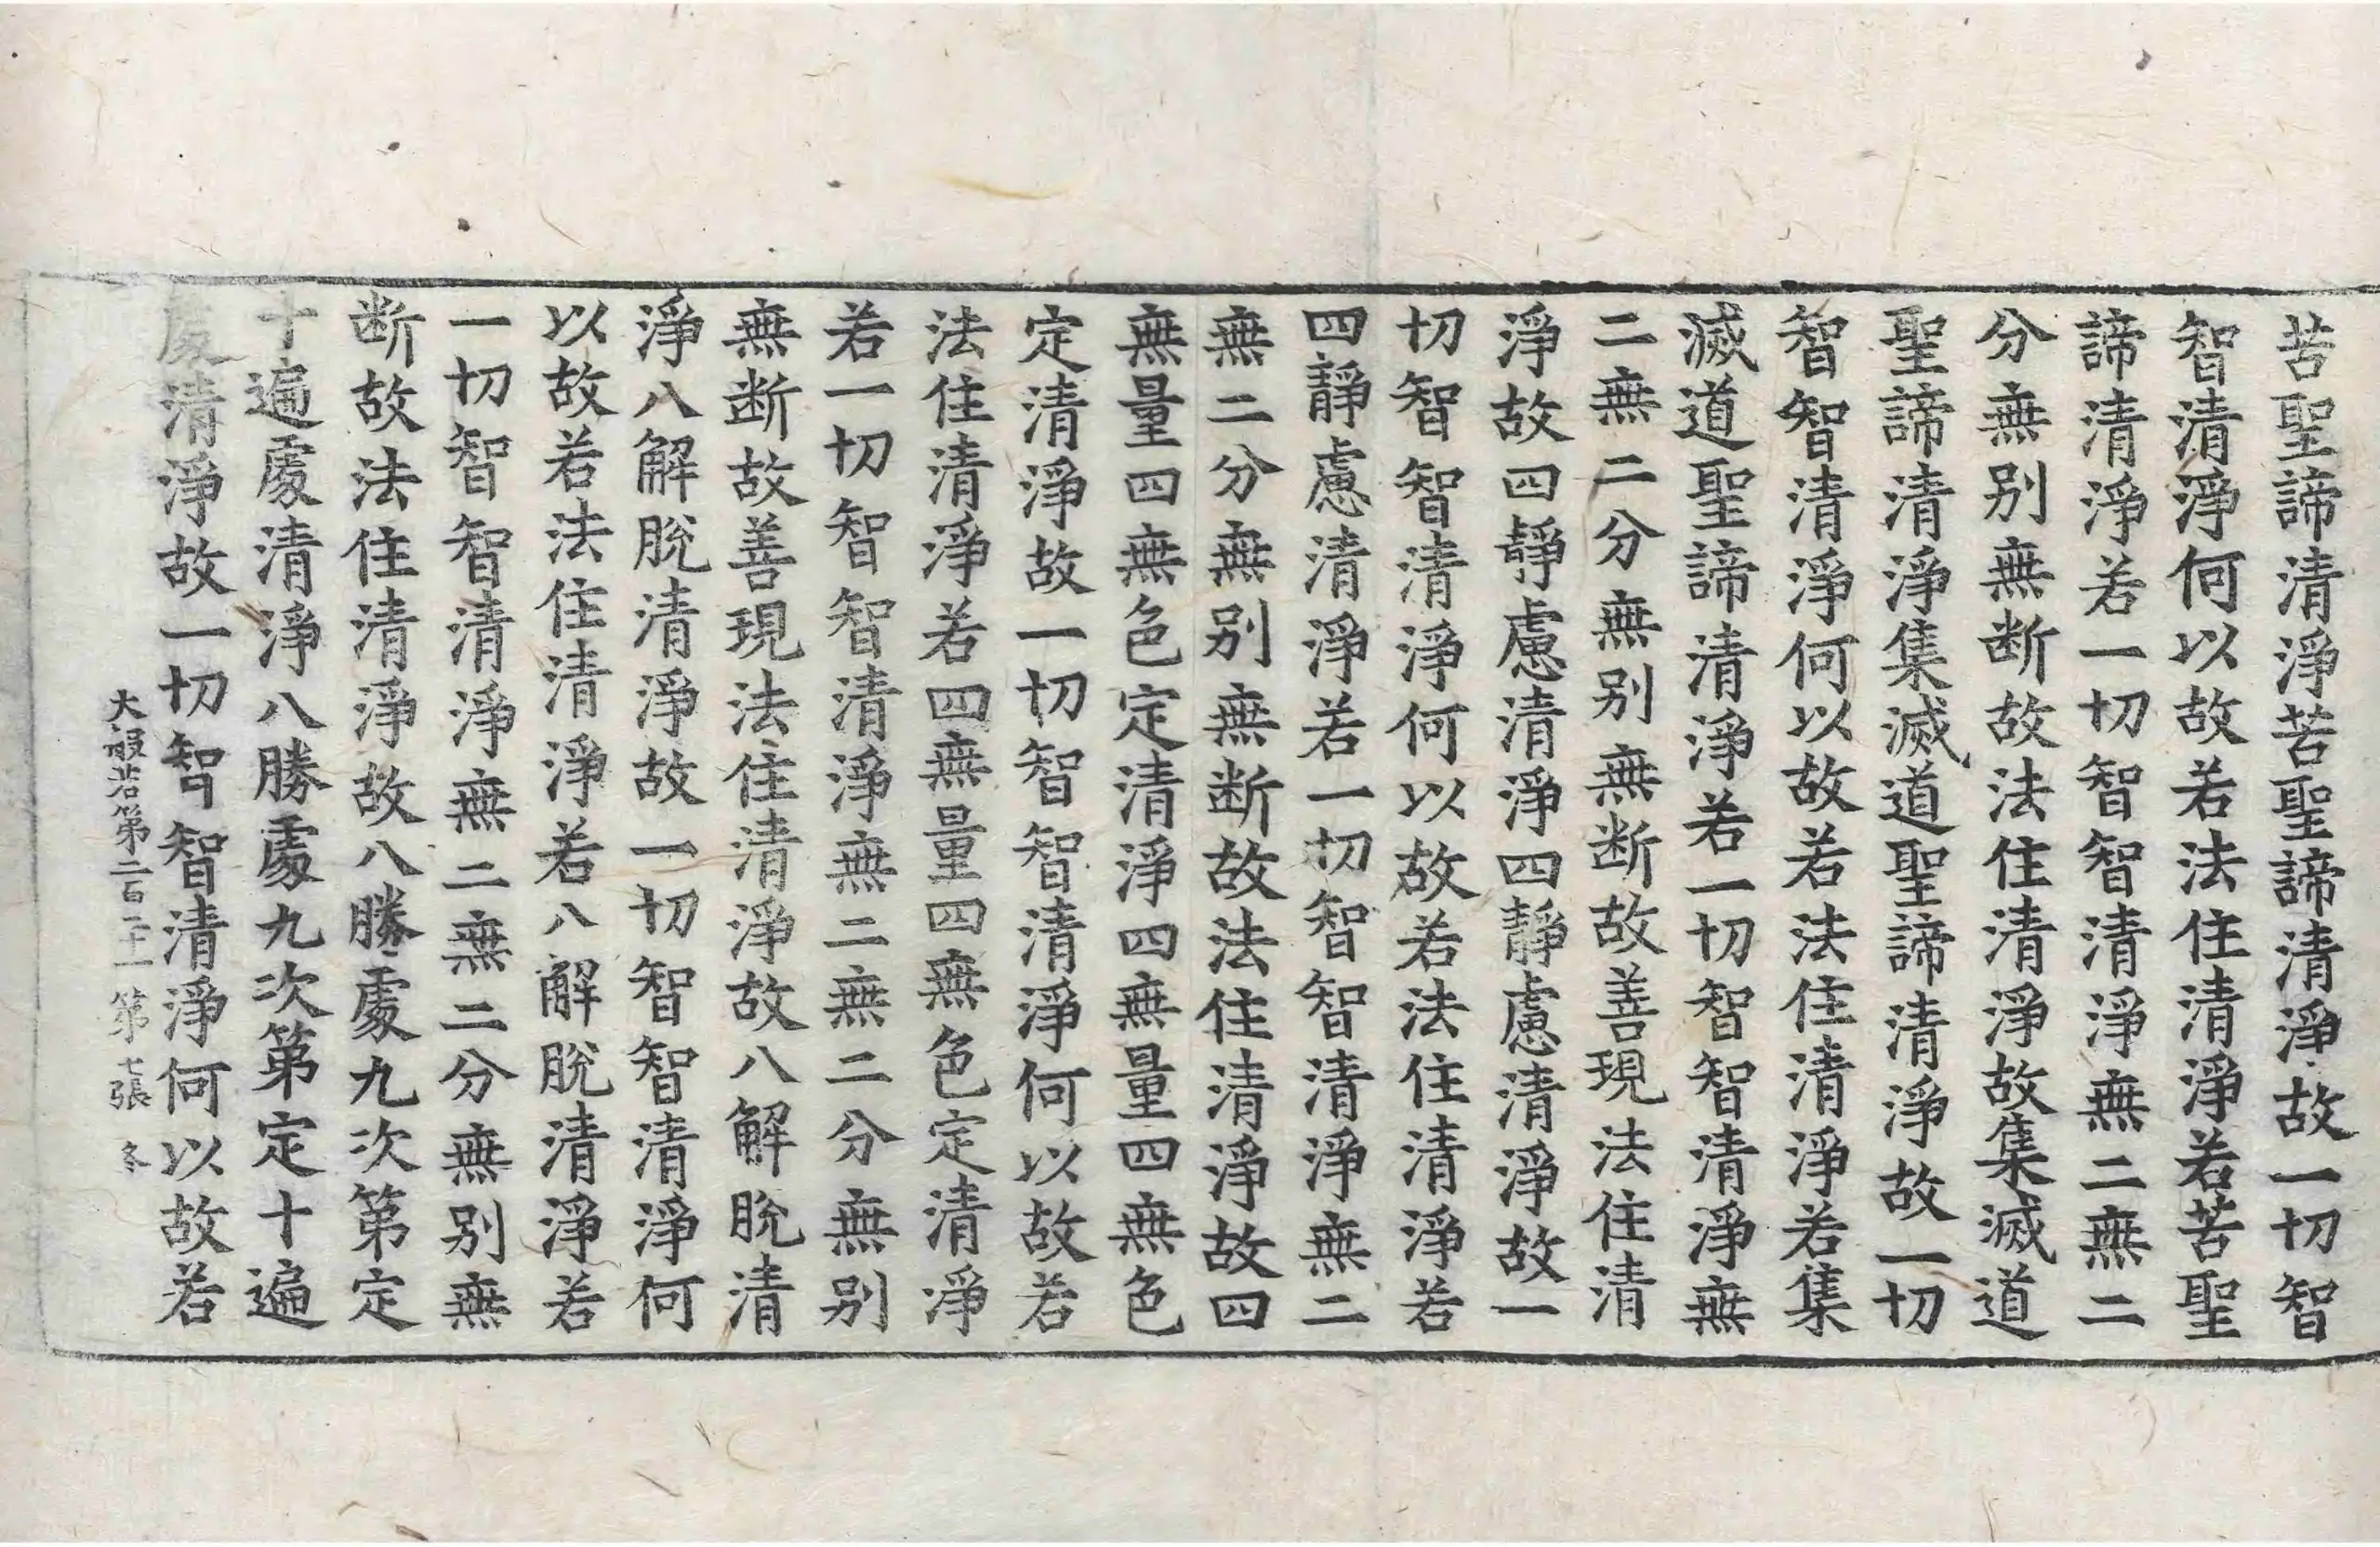 苦聖諦清淨苦聖諦清淨故一切智
智清淨何以故若法住清淨若苦聖
諦清淨若一切智智清淨無二無二
分無别無断故法住清淨故集滅道
聖諦清淨集滅道聖諦清淨故一切
智智清淨何以故若法住清淨若集
滅道聖諦清淨若一切智智清淨無
二無二分無别無断故善現法住清
淨故四靜慮清淨四靜慮清淨故一
切智智清淨何以故若法住清淨若
四靜慮清淨若一切智智清淨無二
無二分無别無断故法住清淨故四
無量四無色定清淨四無量四無色
定清淨故一切智智清淨何以故若
法住清淨若四無量四無色定清淨
若一切智智清淨無二無二分無别
無断故善現法住清淨故八解脫清
淨八解脫清淨故一切智智清淨何
以故若法住清淨若八解脫清淨若
一切智智清淨無二無二分無别無
断故法住清淨故八勝處九次第定
十遍處清淨八勝處九次第定十遍
處清淨故一切智智清淨何以故若
大般若第二百二十一 第七張 冬